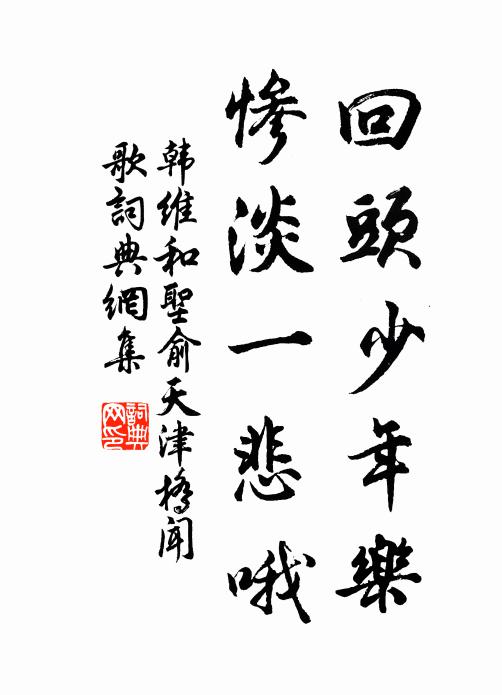 回頭少年樂
慘淡一悲哦
韩维和聖俞天津橋聞
歌詞典網集
詞典
网印